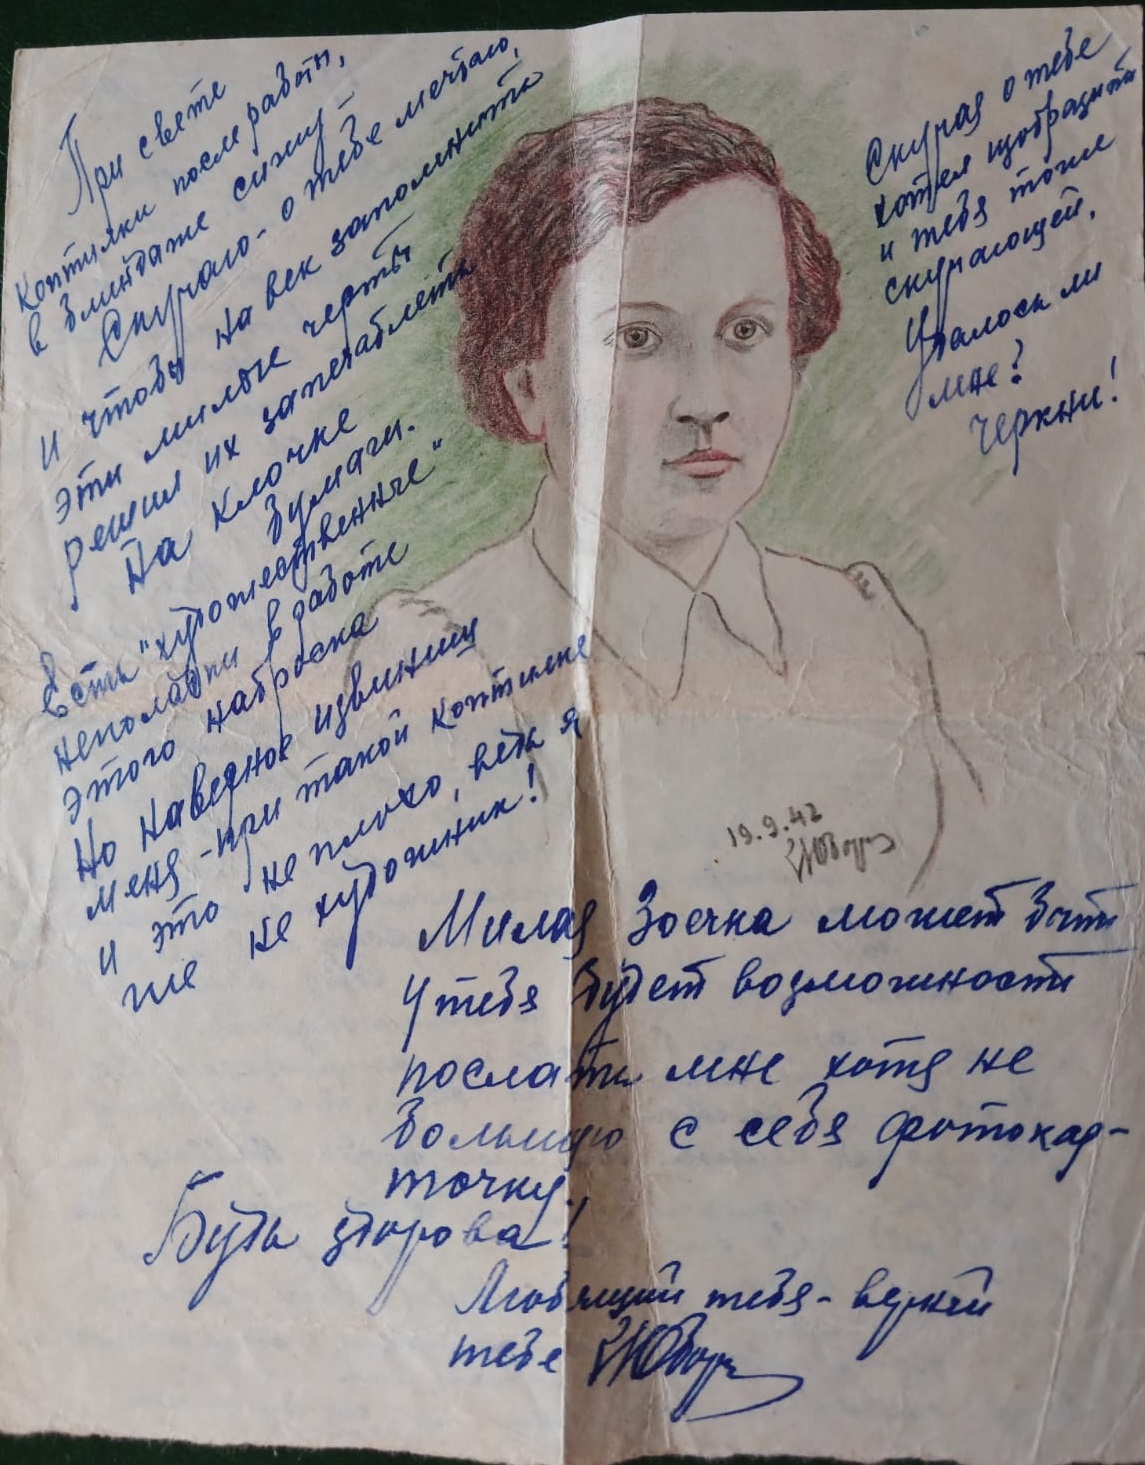 При свете
коптилки после работы,
в блиндаже сижу –
Скучаю – о тебе мечтаю,
и чтобы на век запомнить
эти милые черты
решил их запечатлеть
На клочке
бумаги.
Есть "художественные"
неполадки в работе
этого наброска
Но наверное извиниш
меня – при такой коптилке
и это не плохо, ведь я
же не художник!
Скучая о тебе
хотел изобразить
и тебя тоже
скучающей.
Удалось ли
мне?
Черкни!
19.9.42
Милая Зоечка может быть
у тебя будет возможность
послать мне хотя не
большую с себя фотокар-
точку.
Будь здорова!
Любящий тебя – верный
тебе